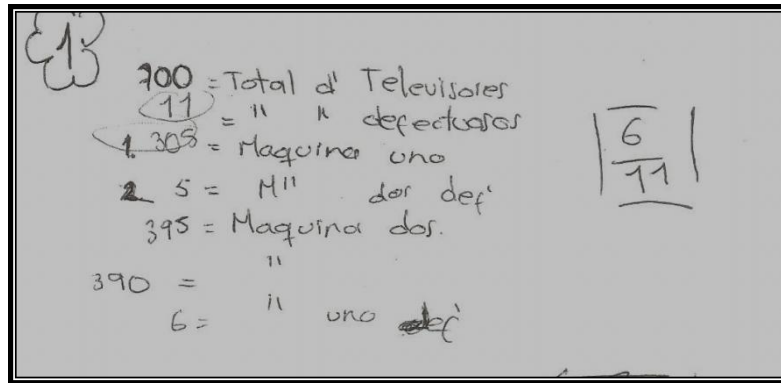 1
700 = Total d' Televisores
11 = " " defectuosos
1. 305 = Maquina uno
2 5 = M" dos def'
395 = Maquina dos.
390 = "
6 = " uno def'
6
11